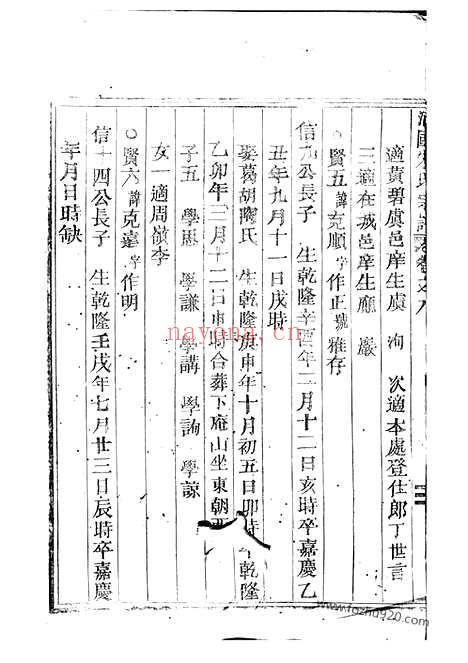 氏宗譜
適黃碧虞邑庠生虞 洵 次適本處登仕郎丁世言
三適在城邑庠生應 嚴
○賢五諱克順字作正號雅存
信九公長子 生乾隆辛酉年二月十二日亥時卒嘉慶乙
丑年九月十一日戌時
娶葛胡陳氏 生乾隆庚申年十月初五日卯時 乾隆
乙卯年三月十二日申時合葬下庵山坐東朝西
子五 學思 學謙 學講 學詢 學諒
女一適周嶺李
○賢六諱克嘉字作明
信十四公長子 生乾隆壬戌年七月廿三日辰時卒嘉慶
年月日時缺
nayona.cn
www.fozhu920.com